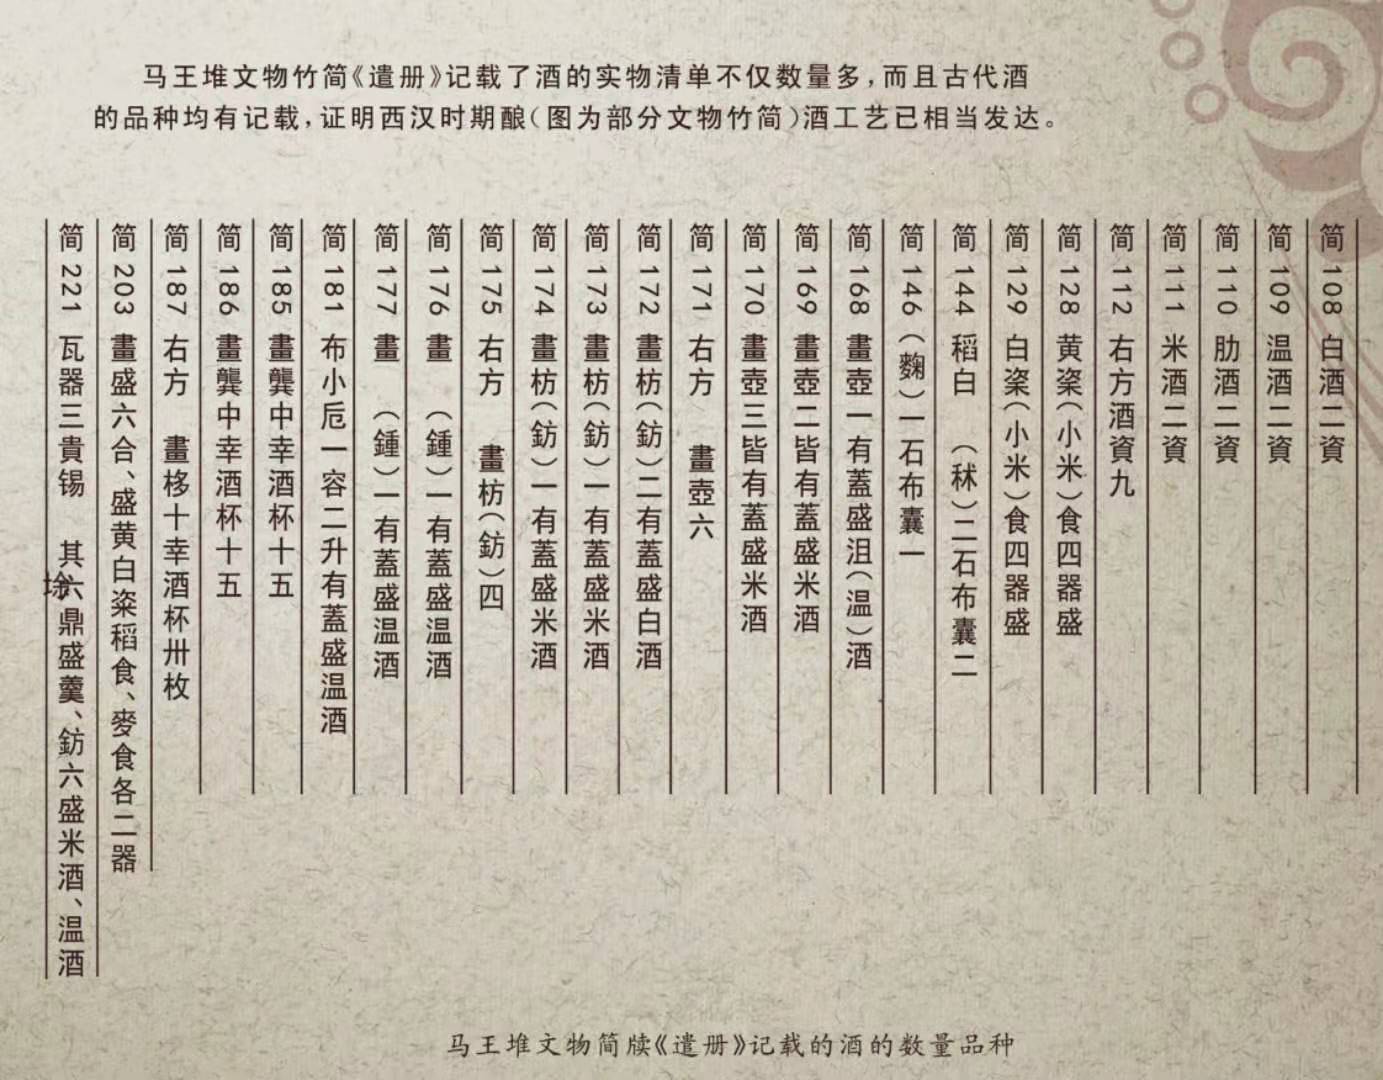 马王堆文物竹简《遣册》记载了酒的实物清单不仅数量多，而且古代酒
的品种均有记载，证明西汉时期酿（图为部分文物竹简）酒工艺已相当发达。
简108 白酒二資
简109 温酒二資
简110 肋酒二資
简111 米酒二資
简112 右方酒資九
简128 黄粢（小米）食四器盛
简129 白粢（小米）食四器盛
简144 稻白 （秫）二石布囊二
简146（麴）一石布囊一
简168 畫壺一有蓋盛沮（温）酒
简169 畫壺二皆有蓋盛米酒
简170 畫壺三皆有蓋盛米酒
简171 右方 畫壺六
简172 畫枋（鈁）二有蓋盛白酒
简173 畫枋（鈁）一有蓋盛米酒
简174 畫枋（鈁）一有蓋盛米酒
简175 右方 畫枋（鈁）四
简176 畫 （鍾）一有蓋盛温酒
简177 畫 （鍾）一有蓋盛温酒
简181 布小卮一容二升有蓋盛温酒
简185 畫龔中幸酒杯十五
简186 畫龔中幸酒杯十五
简187 右方 畫栘十幸酒杯卅枚
简203 畫盛六合、盛黄白粢稻食、麥食各二器
简221 瓦器三貴锡 其六鼎盛羹、鈁六盛米酒、温酒
马王堆文物简牍《遣册》记载的酒的数量品种